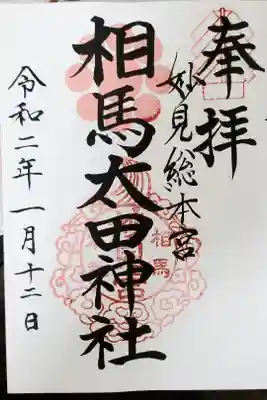 奉拝
妙見総本宮
相馬太田神社
令和二年一月十二日
相馬